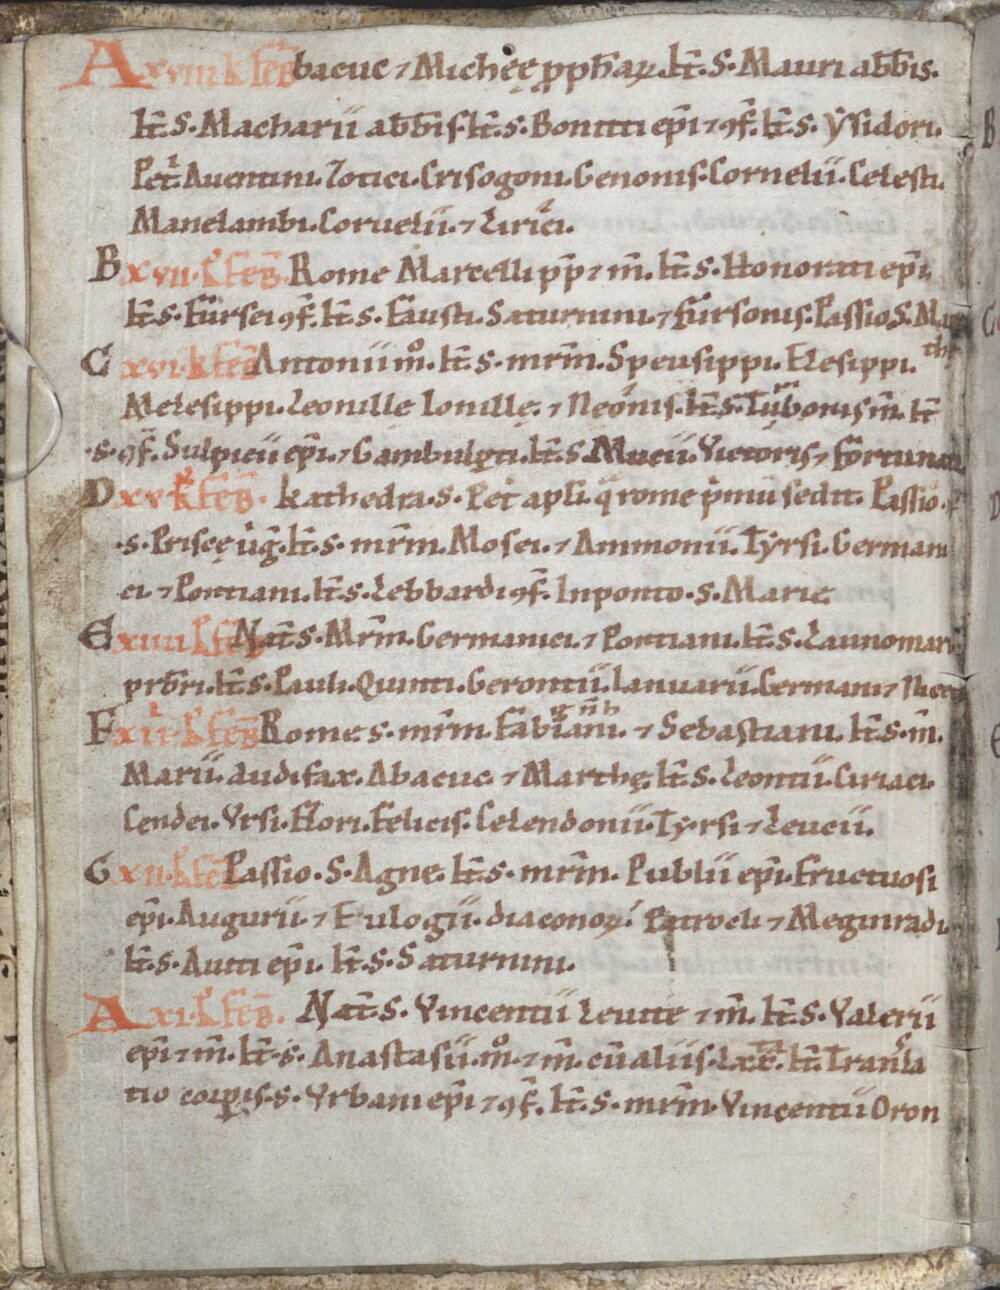 A xviii k feb bacuc ⁊ Michęę ꝓphaꝝ. kł. S. Mauri abbis.
kł. s. Macharii abbis. kł. s. Boniti epi ⁊ ꝯf. kł. s. Ysidori.
Pet. Auentini. Zotici. Crisogoni. Genonis. Cornelii. Celesti.
Manelambi. Coruelii. ⁊ Lirici.
B xvii. k feb. Rome Marcelli pp ⁊ m. kł. s. Honorati epi.
kł. s. Fursei ꝯf. kł. s. Fausti. Saturnini. ⁊ fursonis. Passio. S. Mar
C xvi. k feb Antonii mo. kł. s. mrm. Speusippi. Elesippi. the
Melesippi. Leonille Ionillę. ⁊ Neonis. kł. s. Turbonis m. kł
. s. ꝯf. Sulpicii epi. ⁊ Gambulęti. kł. s. Mucii. Victoris ⁊ fortuna
D xv. k feb. kathedra. s. Pet apli. q rome pmu sedit. Passio.
. s. Priscę uig. kł. s. mrm. Mosei. ⁊ Ammonii. Tyrsi. Germani
ci. ⁊ Pontiani. kł. s. Lebbardi ꝯf. Inponto. s. Marie
E xiiii k feb Nat. s. Mrm. Germanici. ⁊ Pontiani. kł. s. Launomari
prbri. kł. s. Pauli. Quinti. Gerontii. Ianuarii. Germani ⁊
F xiii. k feb Rome s. mrm. Fabiani. ⁊ Sebastiani. kł. s. m.
Marii. Audifax. Abacuc. ⁊ Marthę. kł. s. Leontii. Ciriaci.
Cendei. Vrsi. Flori. Felicis. Celendonii. Tyrsi ⁊ Leucii.
G xii. k feb Passio. S. Agne. kł. s. mrm. Publii epi. Fructuosi
epi. Augurii. ⁊ Eulogii. diaconoꝝ. Patrocli ⁊ Meginradi.
kł. s. Autti epi. kł. s. Saturnini.
A xi. k feb. Nat. s. Vincentii Leuite ⁊ m. kł. s. Valerii
epi ⁊ m. kł. s. Anastasii. mo. ⁊ m. cu aliis. Lxx. kł. Transla
tio corpis. s. Vrbani epi ⁊ ꝯf. kł. s. mrm. Vincentii Oron